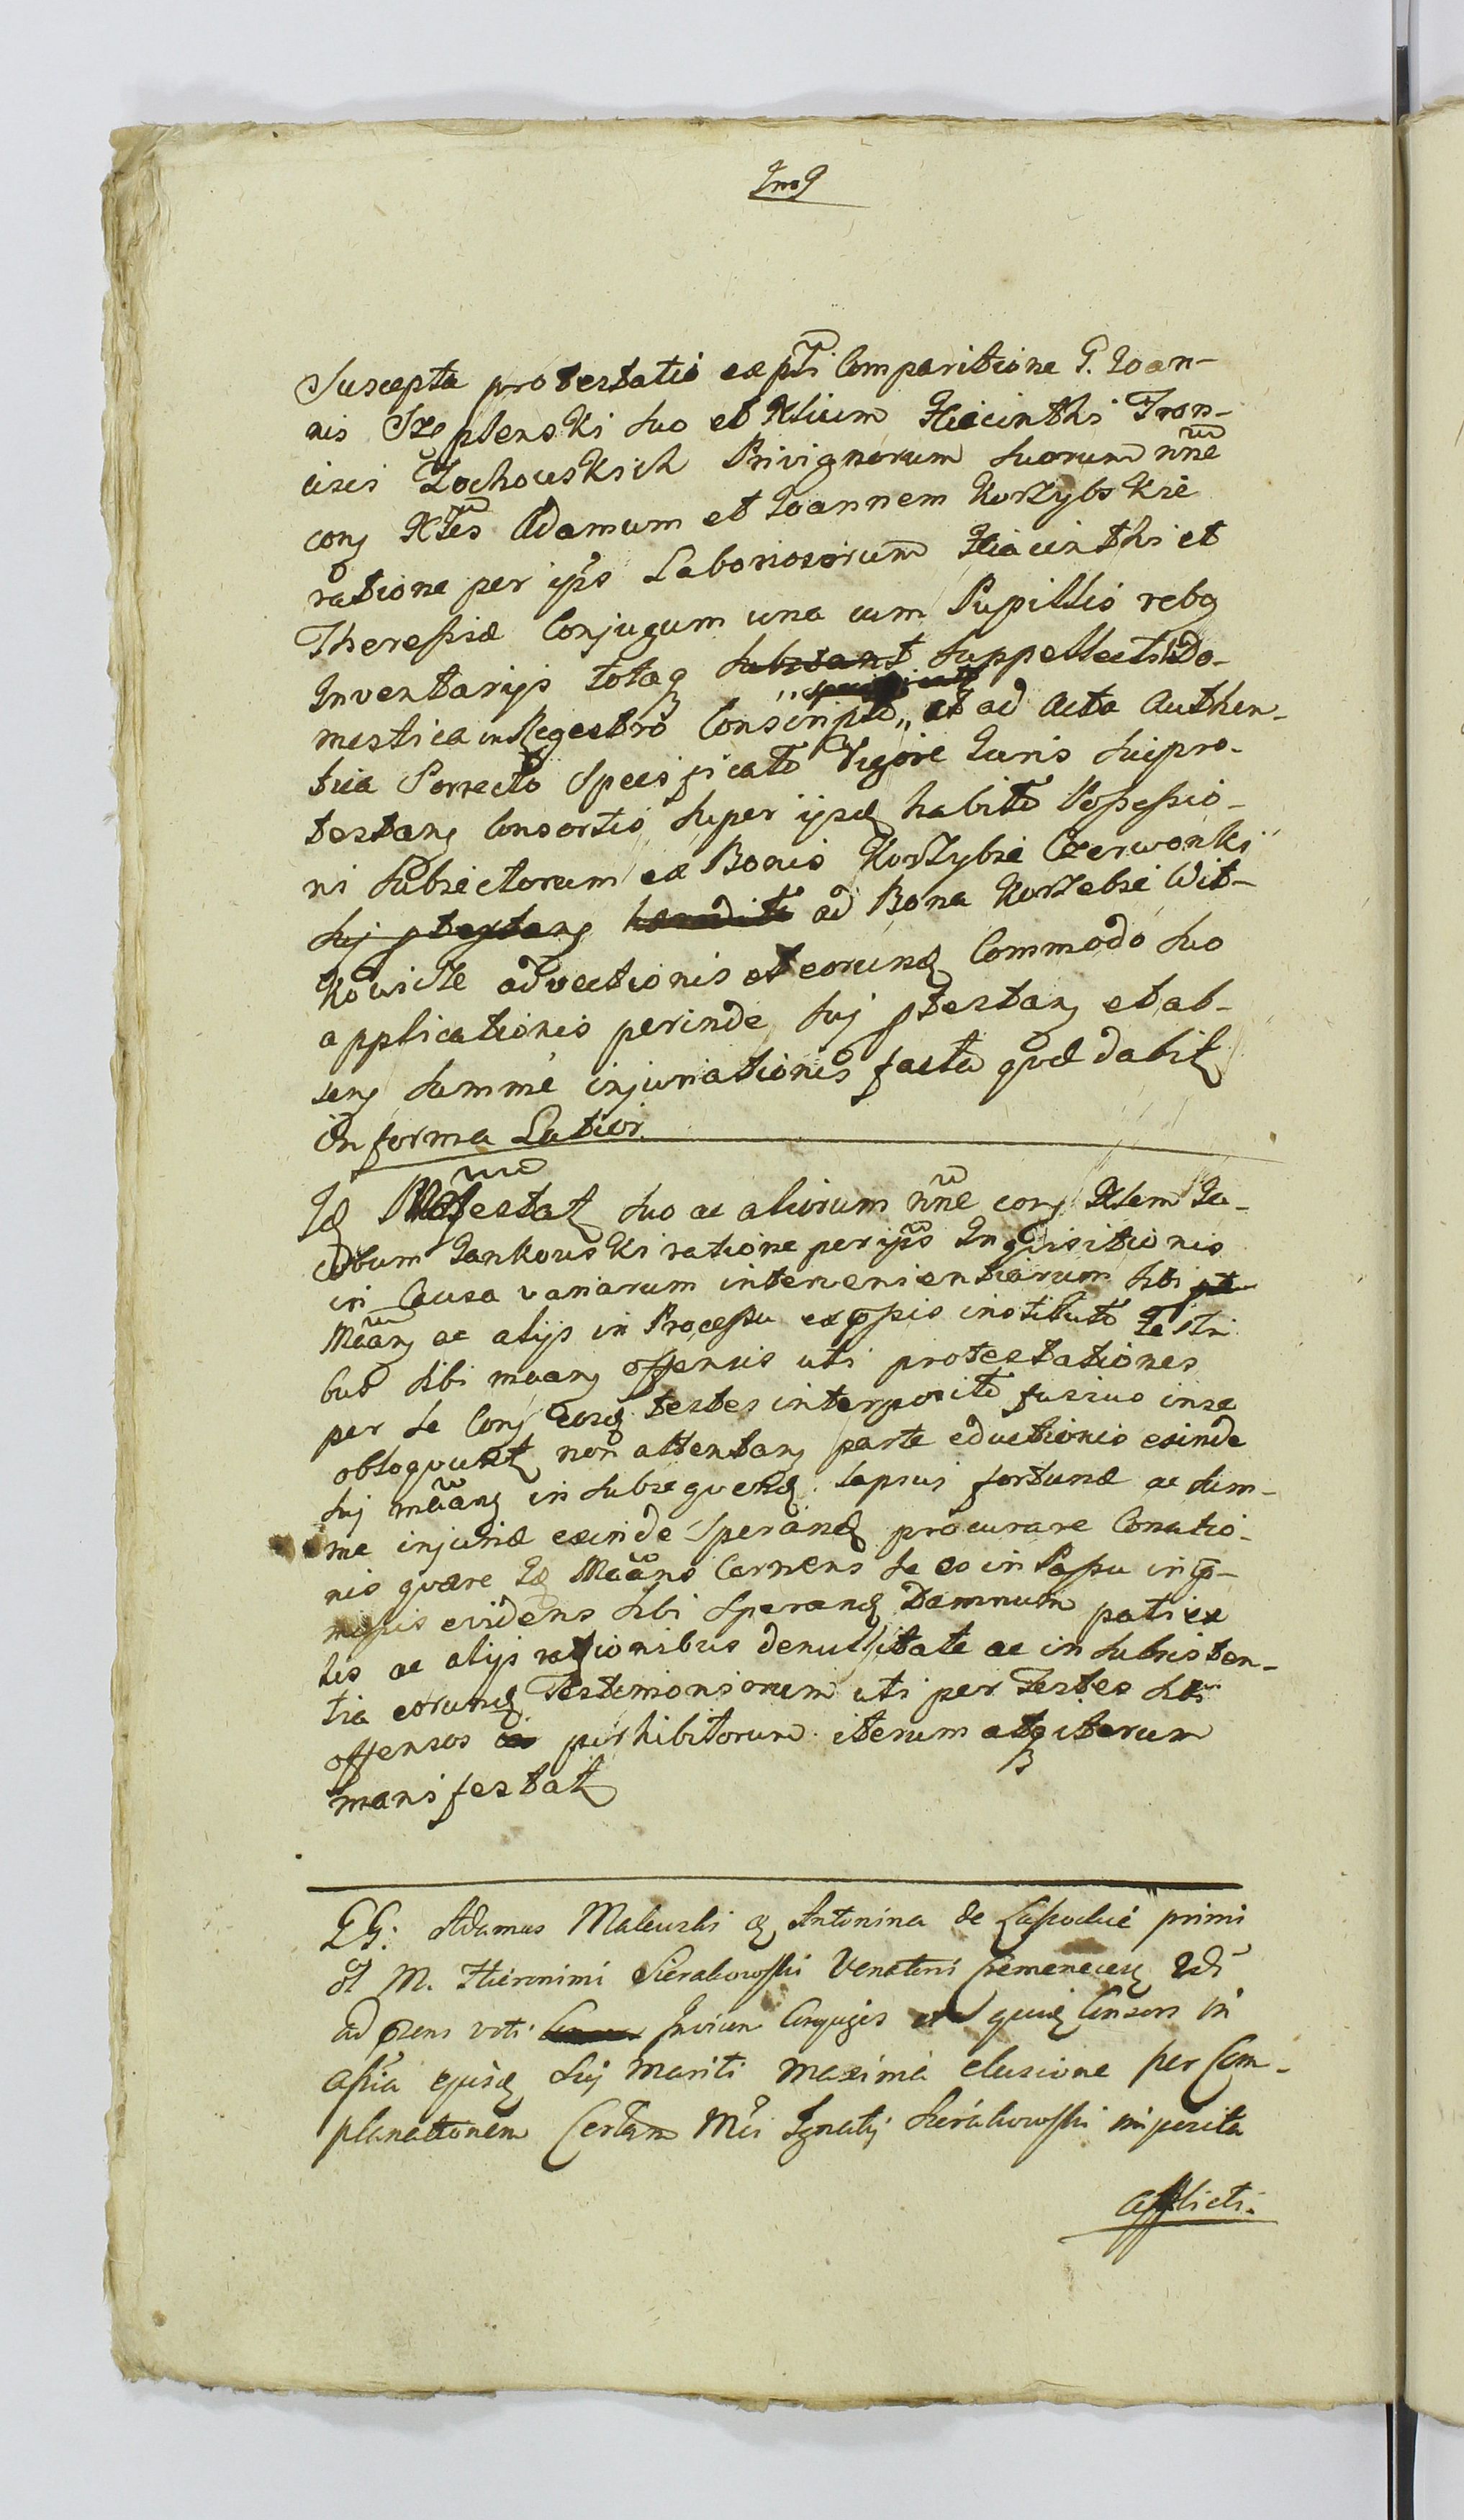 Suscepta protestatio ex pti Comparitione G. Joan-
nis Szeplenski suo et Nlium Hiacinthi Fran-
cisci Zochowskich Privignorum suorum nne
conj Nles Adamum et Joannem Korzybskie
ratione per ipss Laboriosorum Hiacinthi et
Theressiæ Conjugum una cum Pupillis rebq
Inventarijs totaq suppellectili do-
mestica in Regestro Conscripto et ad Acta Authen-
tica Porrecto Specificato Vigore Juris sui pro-
testang Consortis super ijsd habito Possessio-
ni subiectorum ex Bonis Korzybie Czerwonki
ad Bona Korzebie Wit-
kowiste advectionis et eorund Commodo suo
applicationis perinde suj ptestang et ab-
seng summe injuriationis facta quæ dabit
in forma Latiori
Id Mafestat suo ac aliorum nne conj Nlem Ja-
cobum Jankowski ratione per ips Inquisitionis
in Causa variarum intervenientiarum sibi
Maang ac alijs in Processu expssis instituto Testi
bus sibi maang offensis uti protestationes
per se Conj eosd testes interposito fusius in se
obloquunt non attentang parte eductionis exinde
suj maang in subsequend lapsus fortunæ ac sum-
me injuriæ exinde Sperand procurare Conatio-
nis quare Id Maans Cernens se eo in Passu in p-
missis evidens sibi Sperand Damnum pati ex
his ac alijs rationibus de nullitate ac in subsisten-
tia eorund Testimoniorum uti per Testes sibi
offensos perhibitorum iterum atq iterum
manifestat
GG: Adamus Malewski & Antonina de primi
ol M. Hieronimi Sierakowski Venatoris Cremenecen 2di
ad psens voti Invicem Conjuges et quid Consors in
assia ejusd suj Mariti maxima elusione per Com-
planationem Certam Mci Ignatij Sierakowski imperita
afflicti.